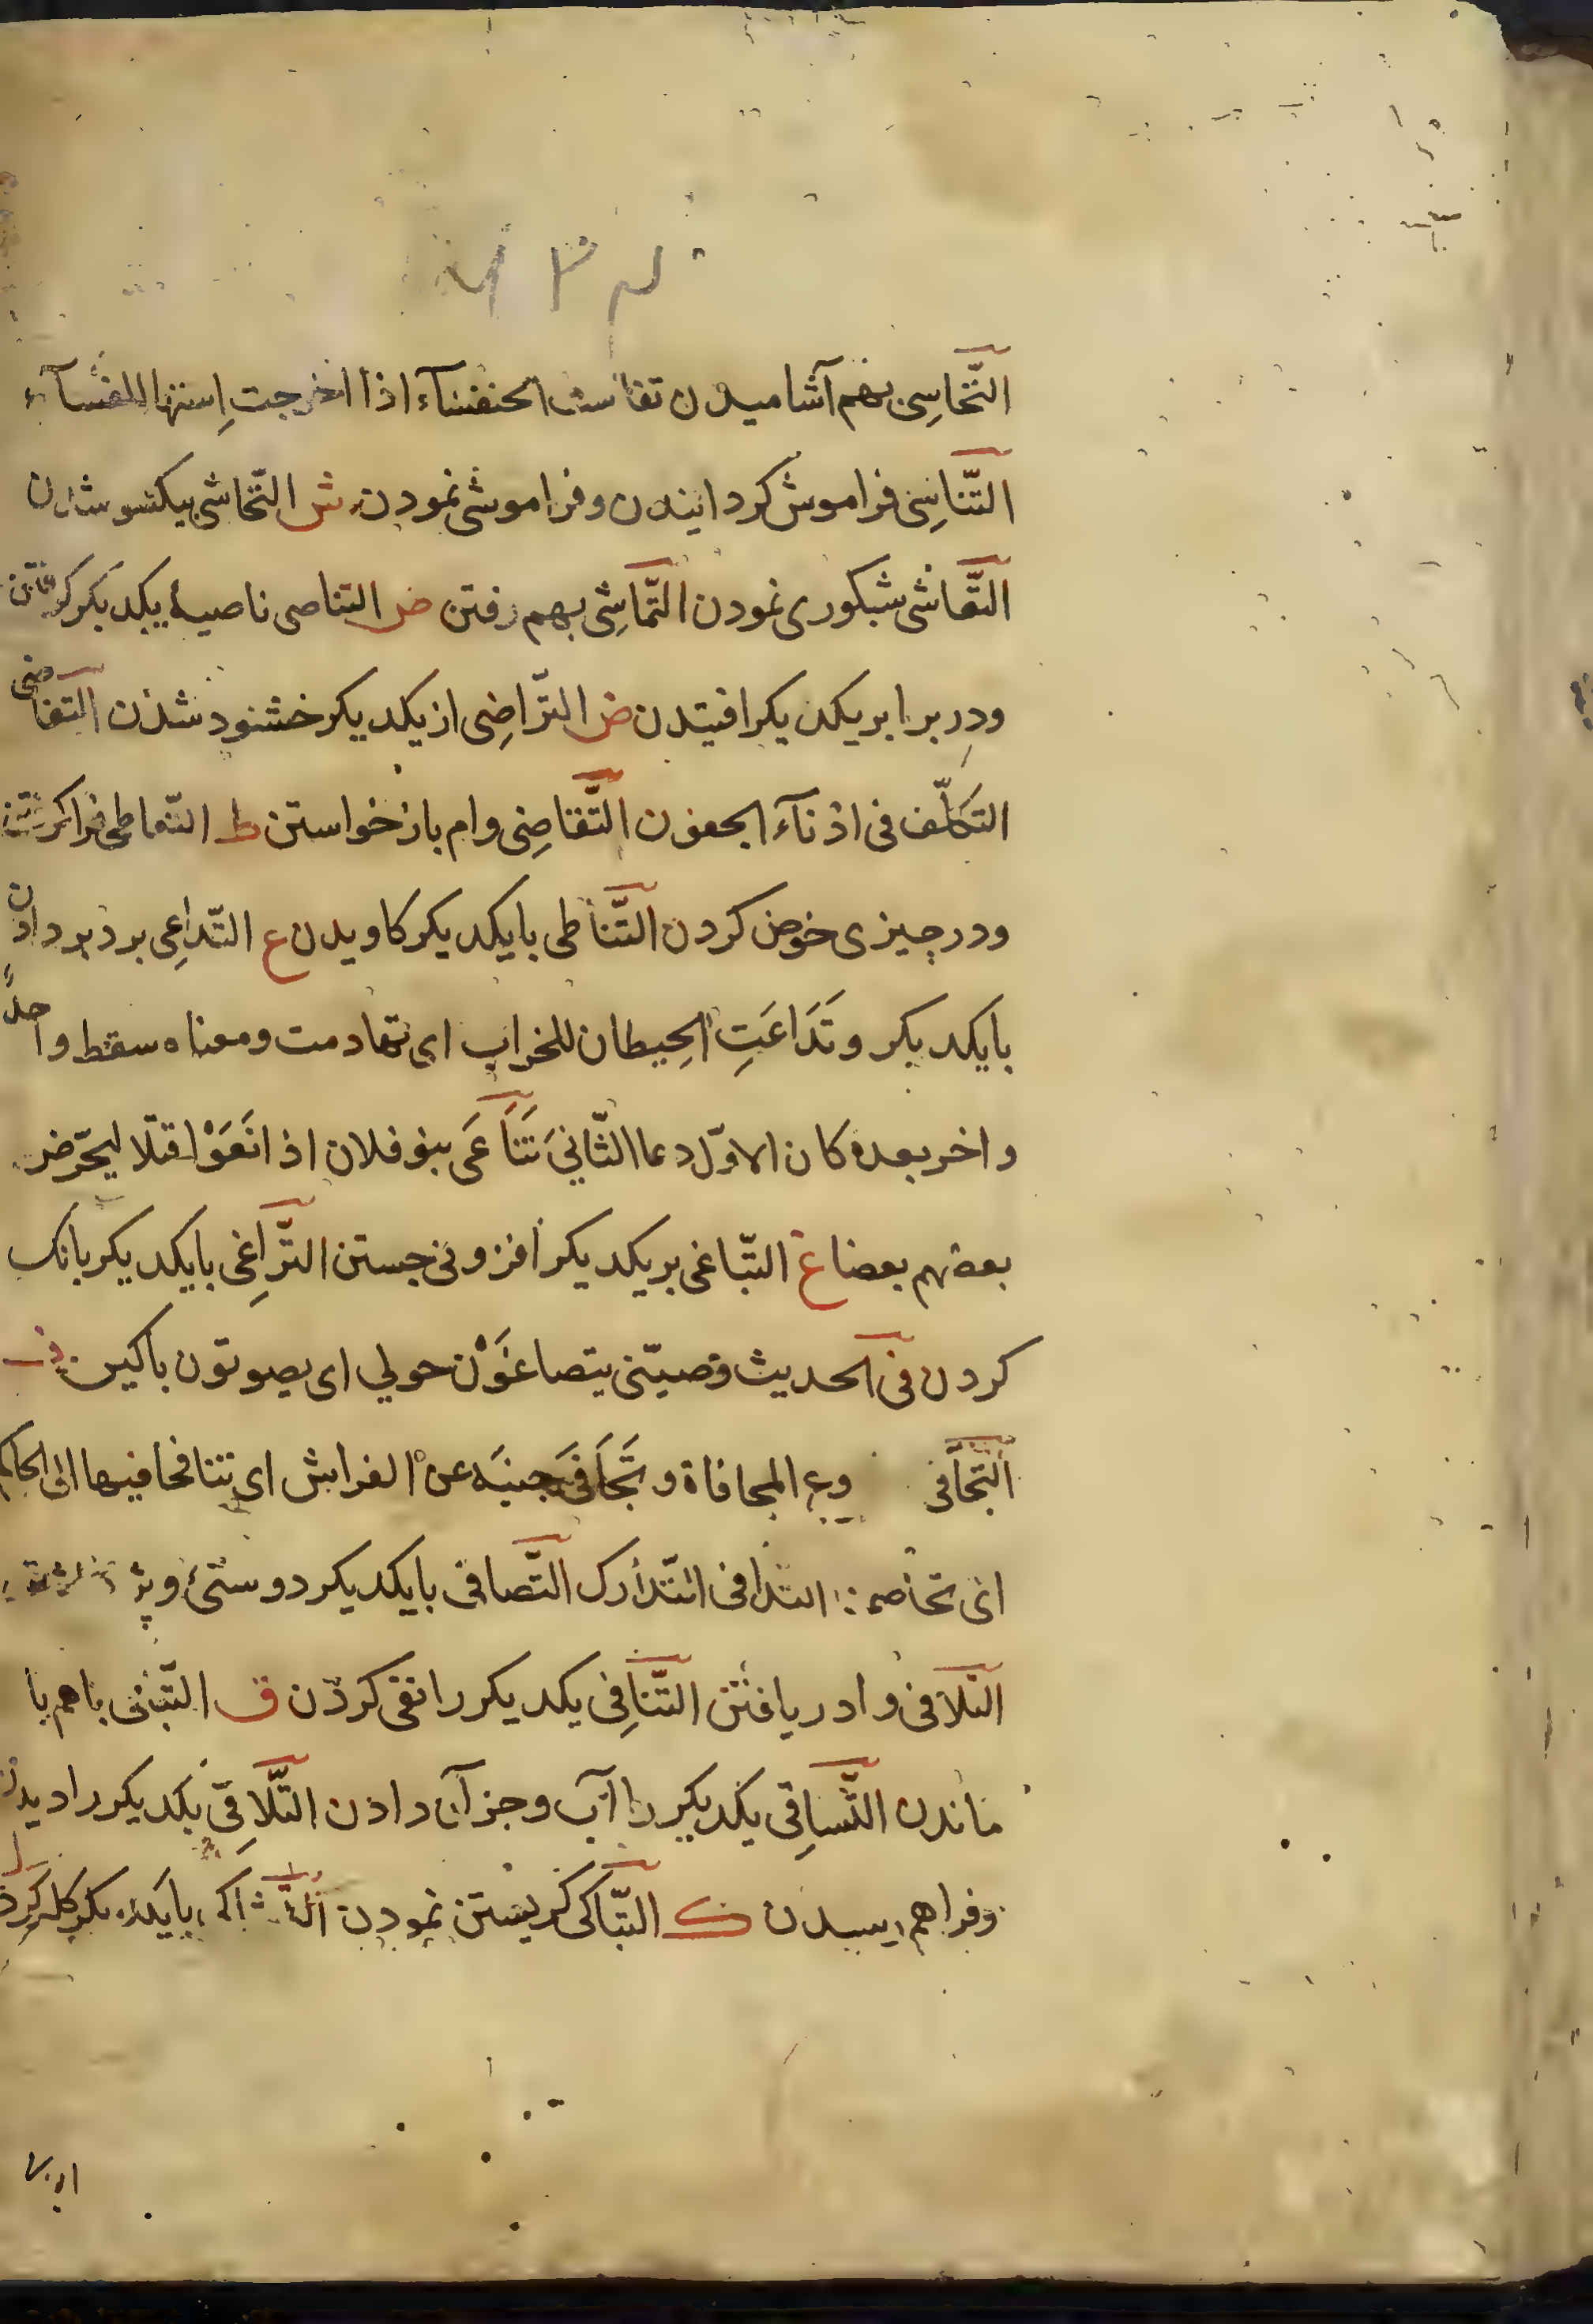 التَّحَاسِی بهم آشامیدن تفاست الخنفساء اذا اخرجت اِستها للفساء
التَّناسِی فراموش کردانیدن وفراموشی نمودن ش التّحاشی بیکسو شدن
التَّعاشی شبکوری نمودن التَّماشِی بهم رفتن ص التناصی ناصیهٔ یکدیکر کرفتن
ودر برابر یکدیکر افیتدن ض التّراضِی از یکدیکر خشنود شذن التّغاضی
التکلّف فی ادناء الجفون التَّقاضِی وام بازخواستن ط التّعاطی فرا کرفتن
ودر چیزی خوض کردن التَّناطی بایکدیکر کاویدن ع التّداعِی برد برد اذن
بایکدیکر وتَدَاعَتِ الحِیطان للخراب ای تهادمت ومعناه سقط واحدً
واخر بعده کان الاوّل دعا الثّانیَ تَنَاعَی بنو فلان اذا نَعَوْا قتلا لیحّرض
بعضهم بعضا غ التّباغی بر یکدیکر افزونی جستن التّراغِی بایکدیکر بانک
کردن فی الحدیث وصبیّتی یتضاغَوْن حولی ای یصوتون باکین ف
التَّجَافی وع المجافاة وتَجَافَی جنبَه عن الفراش ای نبا تنافحا فیها الی الحاکم
ای تخاصم التدافی التّدارک التّصافی بایکدیکر دوستی ویژ
التلافی وادریافتن التَّنافِی یکدیکر را نفی کردن ق التّبقی باهم با
ماندن التَّساقِی یکدیکر را آب وجز آن دادن التَّلَاقِی یکدیکر را دیدن
وفراهم رسیدن ک التّباکی کریستن نمودن التّشاکی بایکدیکر کله کرد